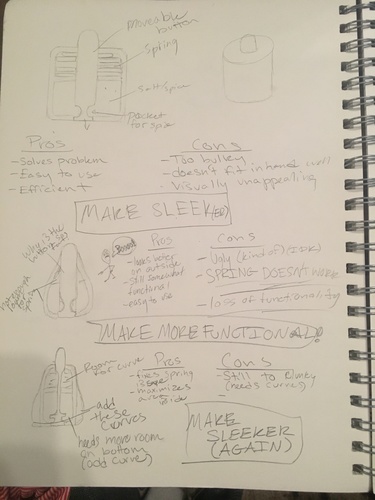 Moveable
button
Spring
Salt/spice
pocket
for spice
Pros
- Solves problem
- Easy to use
- Efficient
Cons
- Too bulky
- doesn't fit in hand well
- Visually unappealing
MAKE SLEEK(ER)
Pros
- looks better
on outside
- still somewhat
functional
- easy to use
Cons
- Ugly (kind of) IDK
- SPRING DOESN'T WORK
- loss of functionality
MAKE MORE FUNCTIONAL!
Room
for curve
add
these
curves
needs more room
on bottom
(add curve)
Pros
- spring
- maximizes
area
inside
Cons
- Still to
(needs curves)
-
MAKE
SLEEKER
(AGAIN)